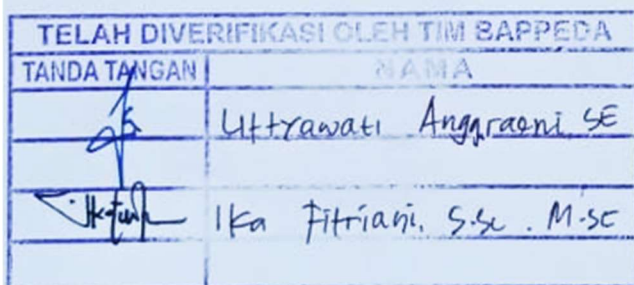 TELAH DIVERIFIKASI OLEH TIM BAPPEDA
TANDA TANGAN NAMA
Uttrawati Anggraeni, SE
Ika Fitriani, S.Sc. M.Sc